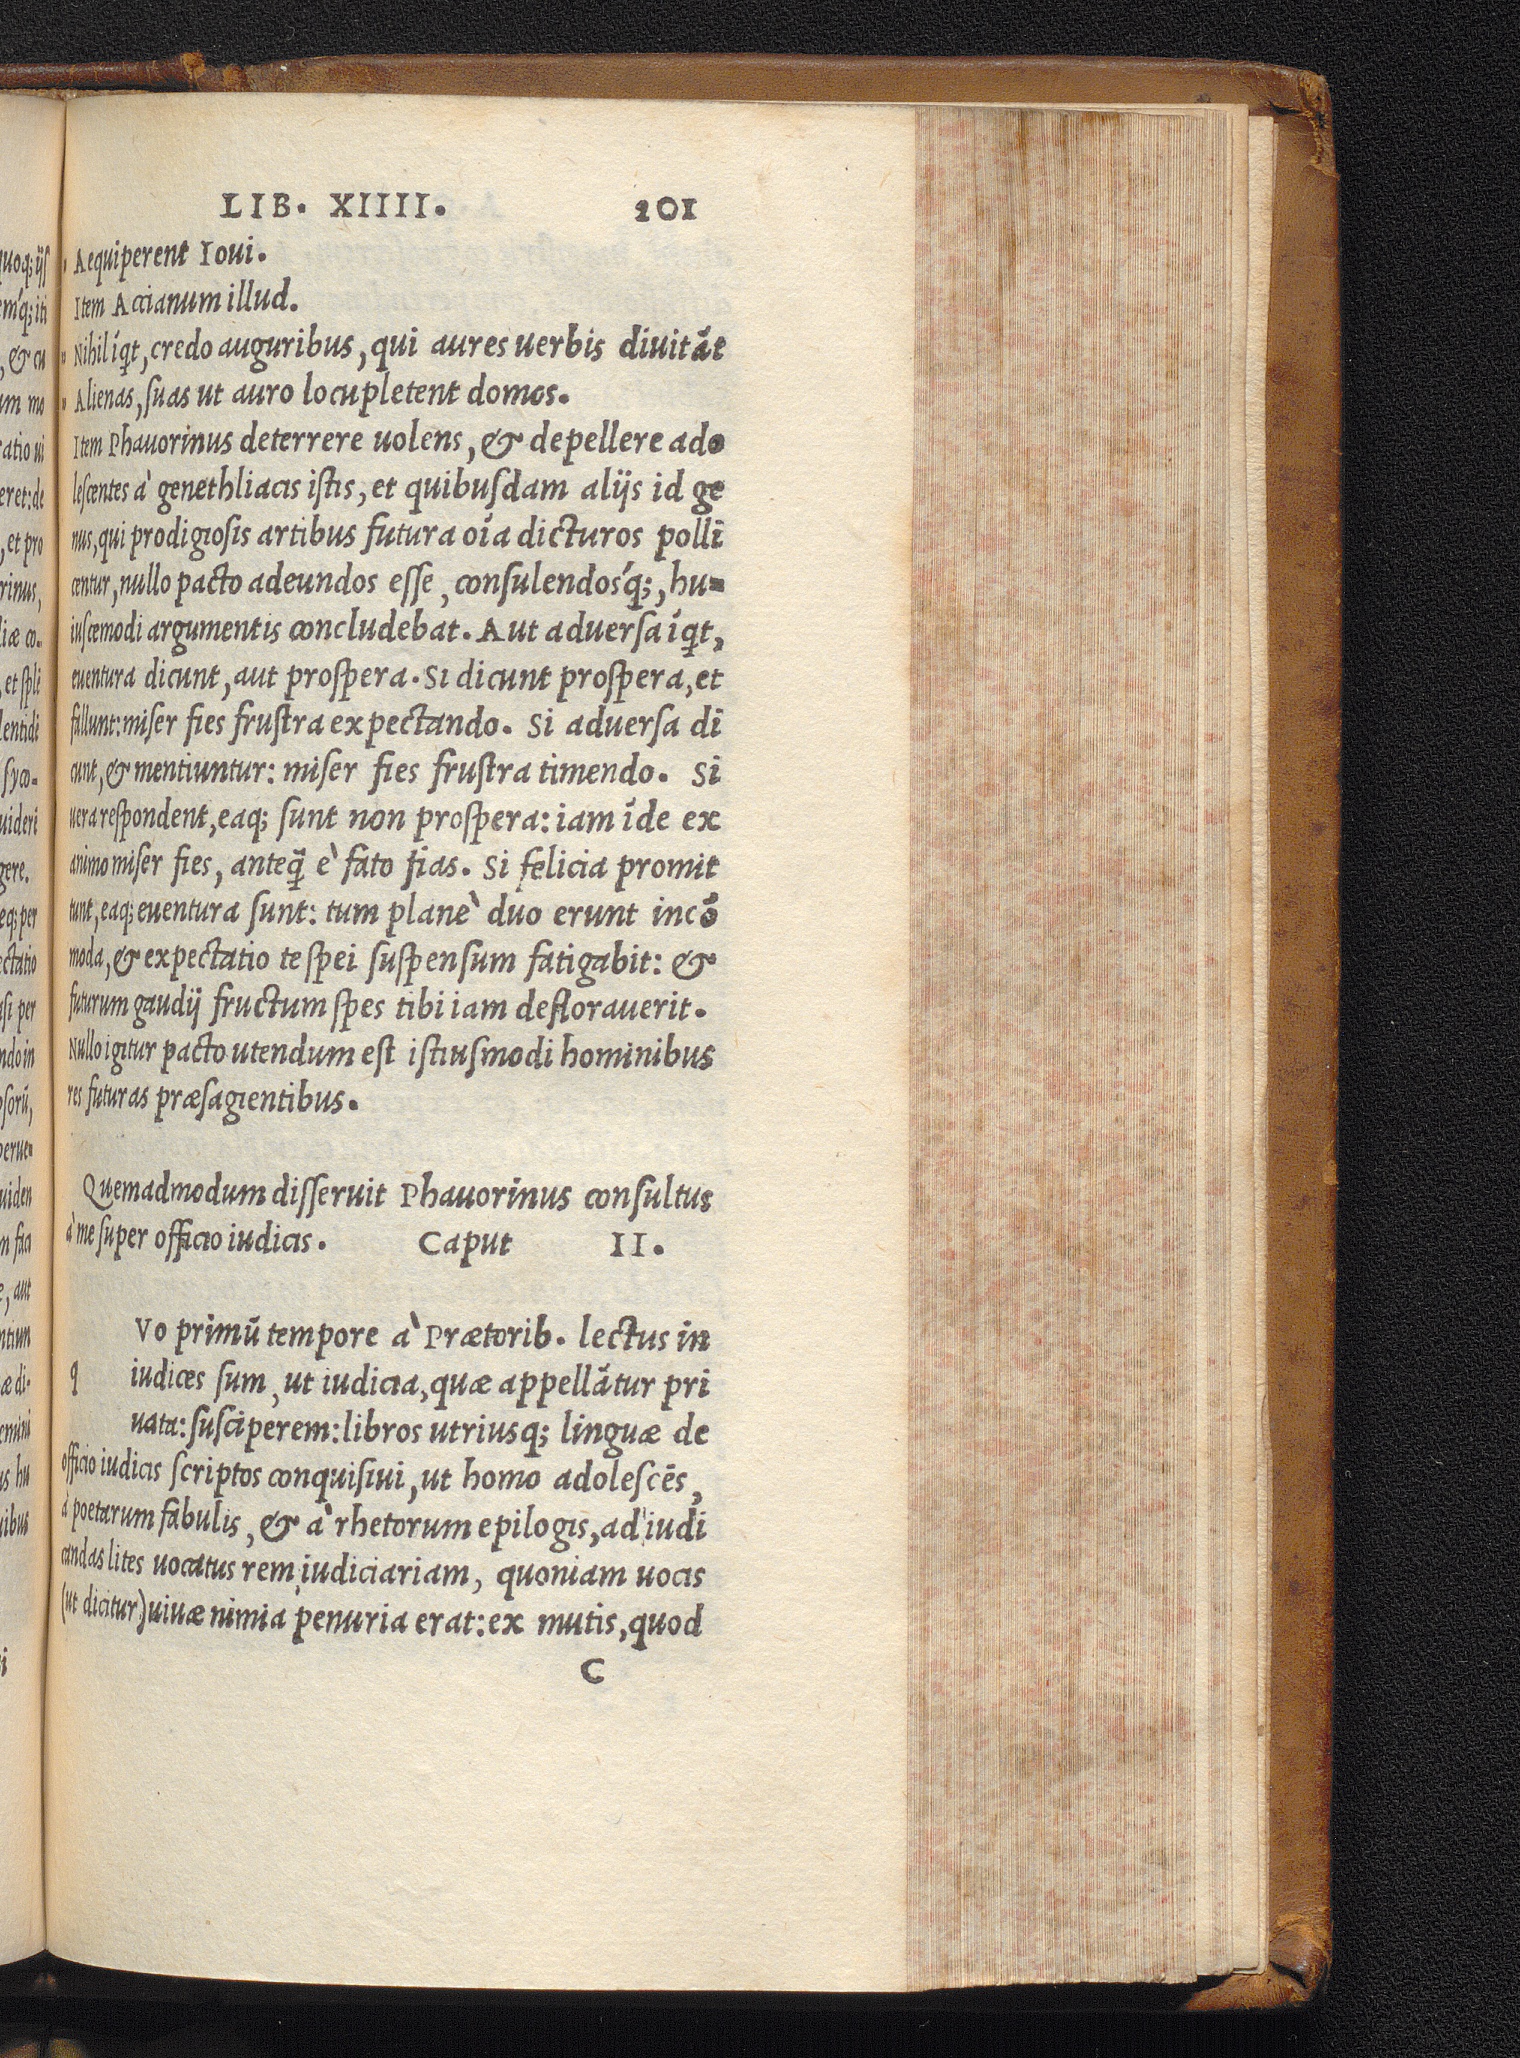 LIB. XIIII. 201
Aequiperent Ioui.
Item Accianum illud.
Nihil íq̃t, credo auguribus, qui aures uerbis diuitāt
Alienas, suas ut auro locupletent domos.
Item Phauorinus deterrere uolens, & depellere ado
lescentes à genethliacis istis, et quibusdam alijs id ge
nus, qui prodigiosis artibus futura oīa dicturos polli
centur, nullo pacto adeundos esse, consulendosq́;, hu-
iuscemodi argumentis concludebat. Aut aduersa íq̃t,
euentura dicunt, aut prospera. Si dicunt prospera, et
fallunt: miser fies frustra expectando. Si aduersa di
cunt, & mentiuntur: miser fies frustra timendo. Si
uera respondent, eaq; sunt non prospera: iam īde ex
animo miser fies, anteq̃ è fato fias. Si felicia promit
tunt, eaq; euentura sunt: tum planè duo erunt incō
moda, & expectatio te spei suspensum fatigabit: &
futurum gaudij fructum spes tibi iam deflorauerit.
Nullo igitur pacto utendum est istiusmodi hominibus
res futuras præsagientibus.
Quemadmodum disseruit Phauorinus consultus
à me super officio iudicis. Caput II.
Vo primū tempore à Prætorib. lectus in
q iudices sum, ut iudicia, quæ appellātur pri
uata: susciperem: libros utriusq; linguæ de
officio iudicis scriptos conquisiui, ut homo adolescēs,
à poetarum fabulis, & à rhetorum epilogis, ad iudi
candas lites uocatus rem iudiciariam, quoniam uocis
(ut dicitur) uiuæ nimia penuria erat: ex mutis, quod
C